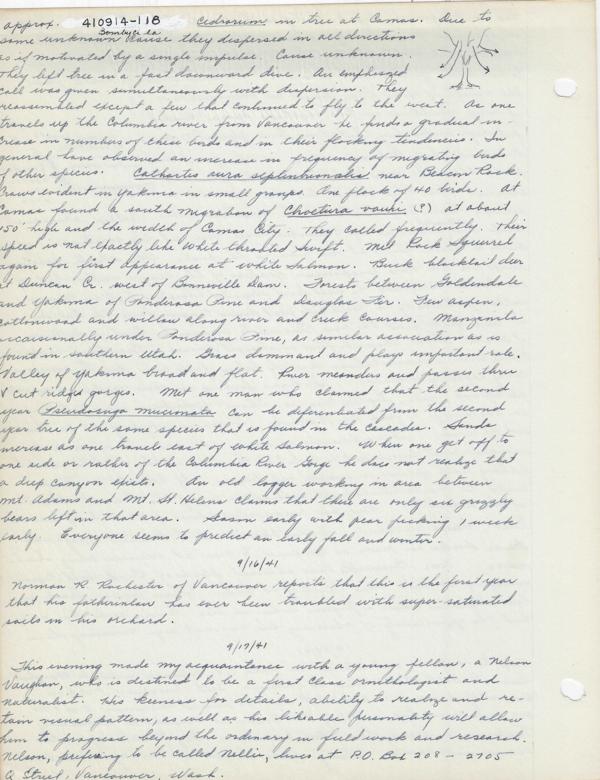 approx. 410914-118 Cedrorum in tree at Camas. Due to
Bombycilla
some unknown cause they dispersed in all directions
as if motivated by a single impulse. Cause unknown.
They left tree in a fast downward dive. An emphasized
call was given simultaneously with dispersion. They
reassembled except a few that continued to fly to the west. As one
travels up the Columbia river from Vancouver he finds a gradual in-
crease in numbers of these birds and in their flocking tendencies. In
general have observed an increase in frequency of migrating birds
of other species. Cathartes aura septentrionalis near Beacon Rock.
Crows evident in Yakima in small groups. One flock of 40 birds. At
Camas found a south migration of Choetura vauxi (?) at about
150' high and the width of Camas City. They called frequently. Their
speed is not exactly like White throated Swift. Met Rock Squirrel
again for first appearance at White Salmon. Buck blacktail deer
at Duncan Cr. west of Bonneville Dam. Forests between Goldendale
and Yakima of Ponderosa Pine and Douglas Fir. Few aspen,
cottonwood and willow along river and creek courses. Manzanita
occassionally under Ponderosa Pine, as similar association as is
found in southern Utah. Grass dominant and plays important role.
Valley of Yakima broad and flat. River meanders and passes thru
& cut ridges gorges. Met one man who claimed that the second
year Pseudosuga mucronata can be diferentiated from the second
year tree of the same species that is found in the Cascades. Sands
increase as one travels east of White Salmon. When one get off to
one side or rather of the Columbia River Gorge he does not realize that
a deep canyon exists. An old logger working in area between
Mt. Adams and Mt. St. Helens claims that there are only six grizzly
bears left in that area. Season early with pear picking 1 week
early. Everyone seems to predict an early fall and winter.
9/16/41
Norman R Rochester of Vancouver reports that this is the first year
that his fatherinlaw has ever been troubled with super-saturated
soils in his orchard.
9/17/41
This evening made my acquaintance with a young fellow, a Nelson
Vaughan, who is destined to be a first class ornithologist and
naturalist. His keeness for details, ability to realize and re-
tain visual pattern, as well as his likeable personality will allow
him to progress beyond the ordinary in field work and research.
Nelson, prefering to be called Nellie, lives at P.O. Box 208 - 2705
Q Street, Vancouver, Wash.